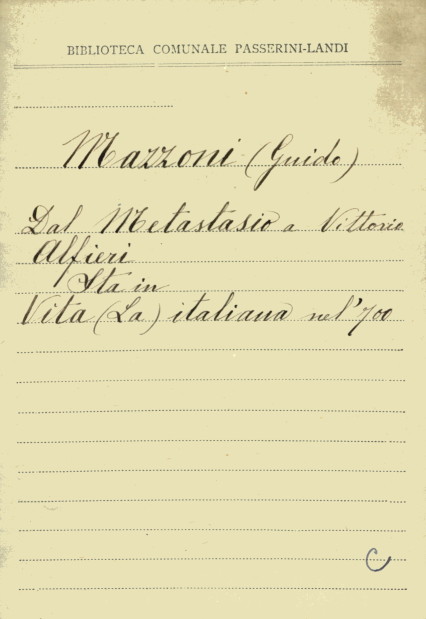 BIBLIOTECA COMUNALE PASSERINI-LANDI
Mazzoni (Guido)
Dal Metastasio a Vittorio
Alfieri
Sta in
Vita (La) italiana nel'700
C